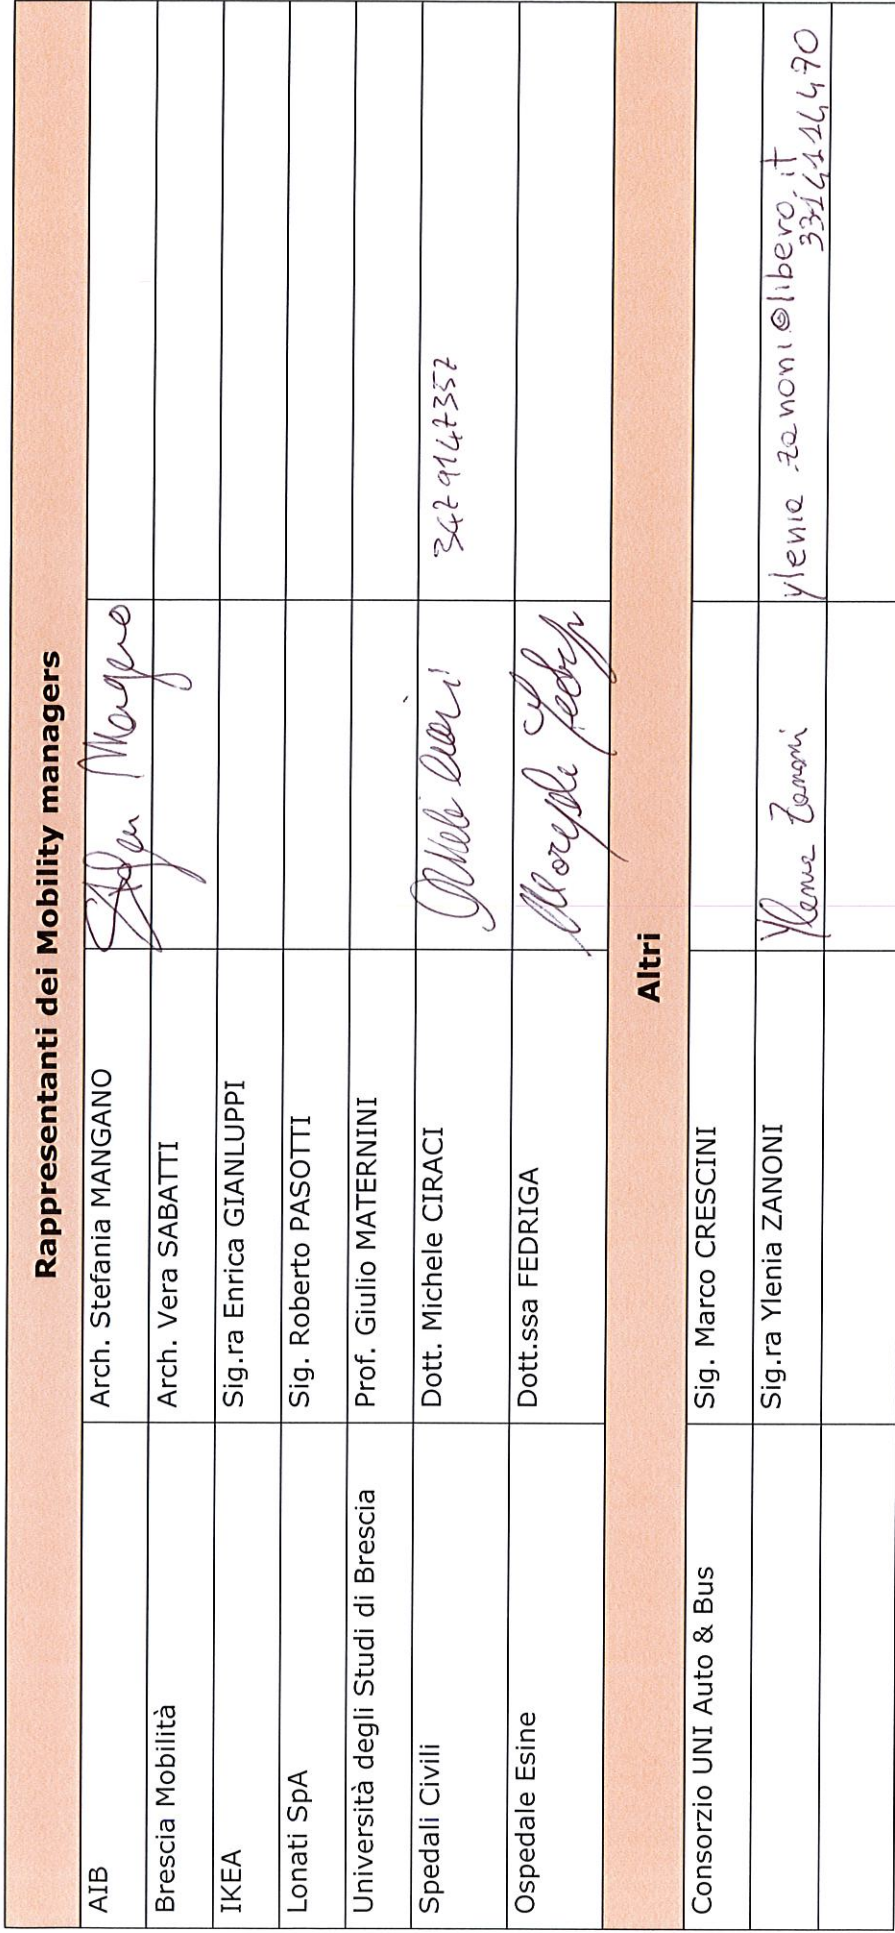 Rappresentanti dei Mobility managers
AIB Arch. Stefania MANGANO
Brescia Mobilità Arch. Vera SABATTI
IKEA Sig.ra Enrica GIANLUPPI
Lonati SpA Sig. Roberto PASOTTI
Università degli Studi di Brescia Prof. Giulio MATERNINI
Spedali Civili Dott. Michele CIRACI 3479147357
Ospedale Esine Dott.ssa FEDRIGA
Altri
Consorzio UNI Auto & Bus Sig. Marco CRESCINI
Sig.ra Ylenia ZANONI Ylenia Zanoni ylenia zanoni@libero.it